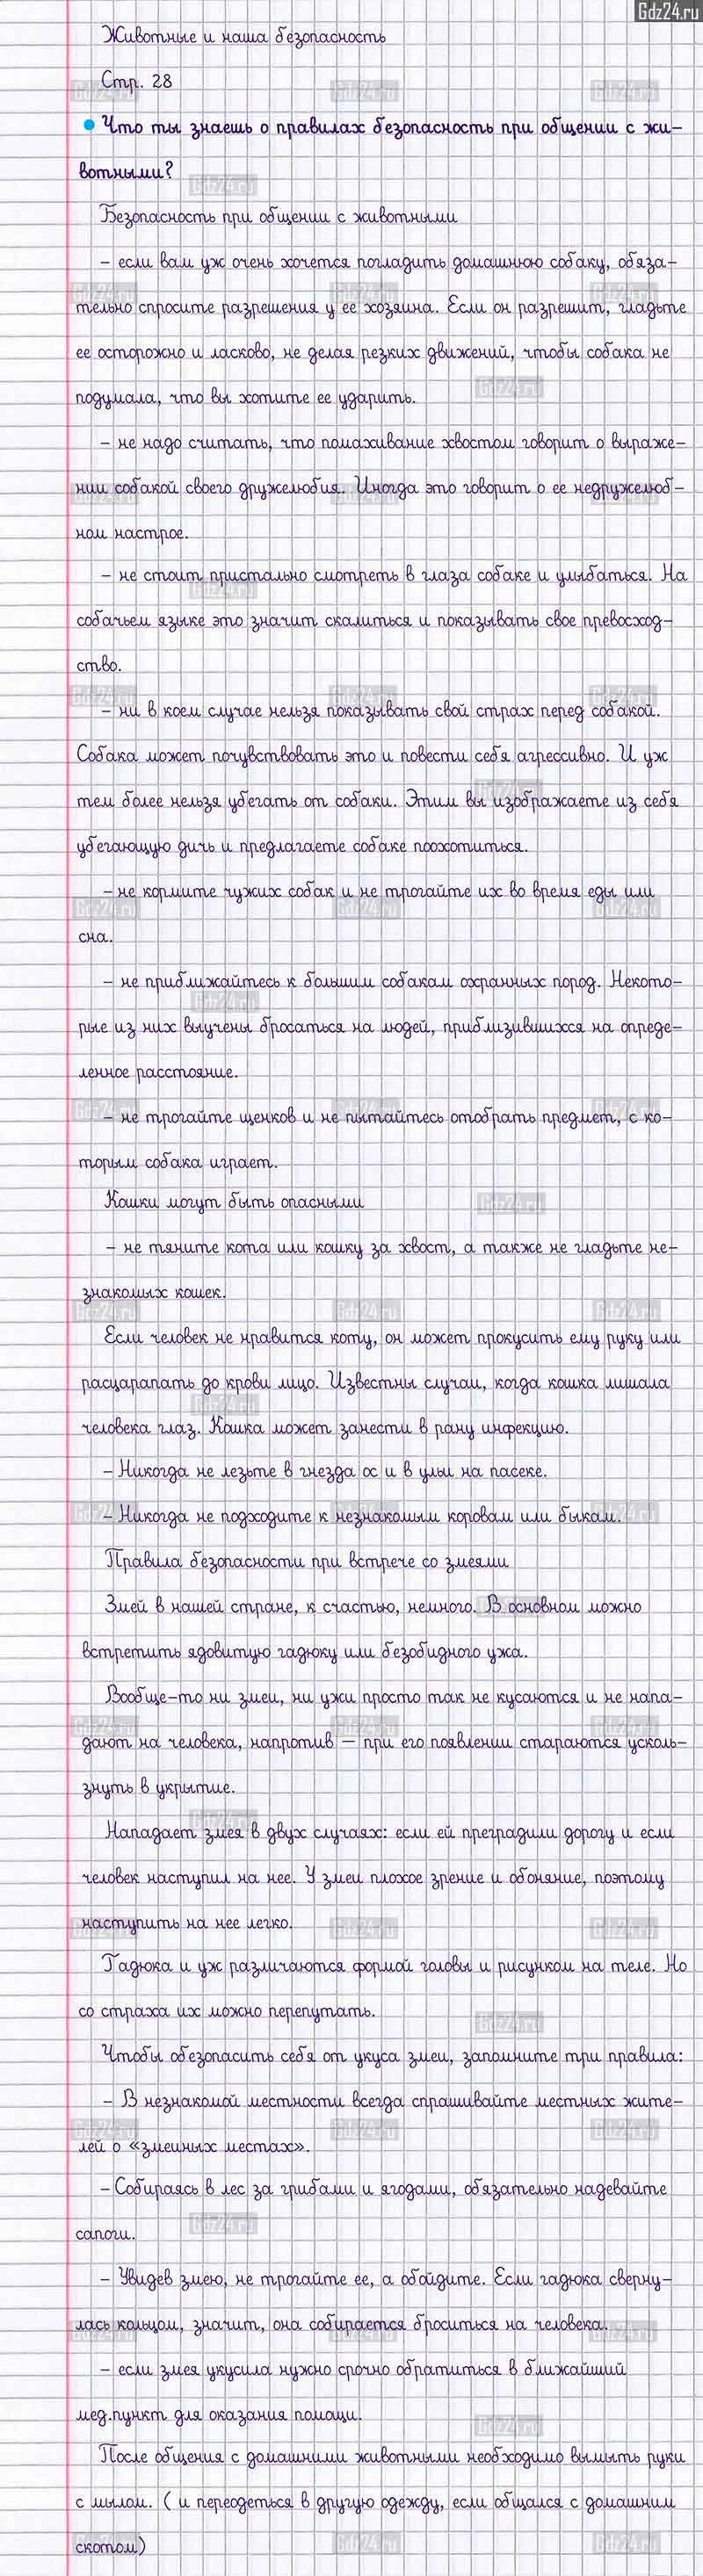 Gdz24.ru
Животные и наша безопасность
Стр. 28
Что ты знаешь о правилах безопасность при общении с жи-
вотными?
Безопасность при общении с животными
– если вам уж очень хочется погладить домашнюю собаку, обяза-
тельно спросите разрешения у ее хозяина. Если он разрешит, гладьте
ее осторожно и ласково, не делая резких движений, чтобы собака не
подумала, что вы хотите ее ударить.
– не надо считать, что помахивание хвостом говорит о выраже-
нии собакой своего дружелюбия. Иногда это говорит о ее недружелюб-
ном настрое.
– не стоит пристально смотреть в глаза собаке и улыбаться. На
собачьем языке это значит скалиться и показывать свое превосход-
ство.
– ни в коем случае нельзя показывать свой страх перед собакой.
Собака может почувствовать это и повести себя агрессивно. И уж
тем более нельзя убегать от собаки. Этим вы изображаете из себя
убегающую дичь и предлагаете собаке поохотиться.
– не кормите чужих собак и не трогайте их во время еды или
сна.
– не приближайтесь к большим собакам охранных пород. Некото-
рые из них выучены бросаться на людей, приблизившихся на опреде-
ленное расстояние.
– не трогайте щенков и не пытайтесь отобрать предмет, с ко-
торым собака играет.
Кошки могут быть опасными
– не тяните кота или кошку за хвост, а также не гладьте не-
знакомых кошек.
Если человек не нравится коту, он может прокусить ему руку или
расцарапать до крови лицо. Известны случаи, когда кошка лишала
человека глаз. Кошка может занести в рану инфекцию.
– Никогда не лезьте в гнезда ос и в ульи на пасеке.
– Никогда не подходите к незнакомым коровам или быкам.
Правила безопасности при встрече со змеями
Змей в нашей стране, к счастью, немного. В основном можно
встретить ядовитую гадюку или безобидного ужа.
Вообще-то ни змеи, ни ужи просто так не кусаются и не напа-
дают на человека, напротив – при его появлении стараются усколь-
знуть в укрытие.
Нападает змея в двух случаях: если ей преградили дорогу и если
человек наступил на нее. У змеи плохое зрение и обоняние, поэтому
наступить на нее легко.
Гадюка и уж различаются формой головы и рисунком на теле. Но
со страха их можно перепутать.
Чтобы обезопасить себя от укуса змеи, запомните три правила:
– В незнакомой местности всегда спрашивайте местных жите-
лей о «змеиных местах».
– Собираясь в лес за грибами и ягодами, обязательно надевайте
сапоги.
– Увидев змею, не трогайте ее, а обойдите. Если гадюка сверну-
лась кольцом, значит, она собирается броситься на человека.
– если змея укусила нужно срочно обратиться в ближайший
мед.пункт для оказания помощи.
После общения с домашними животными необходимо вымыть руки
с мылом. ( и переодеться в другую одежду, если общался с домашним
скотом)